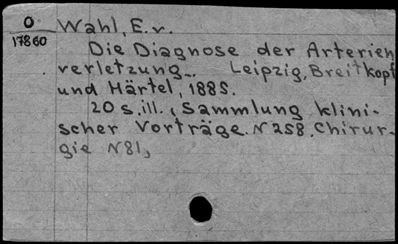 O
17860
Wahl, E. v.
Die Diagnose der Arterien
verletzung.. Leipzig, Breitkopf
und Härtel, 1885.
20 s. ill. (Sammlung klini-
scher Vorträge. N 258. Chirur-
gie N 81,